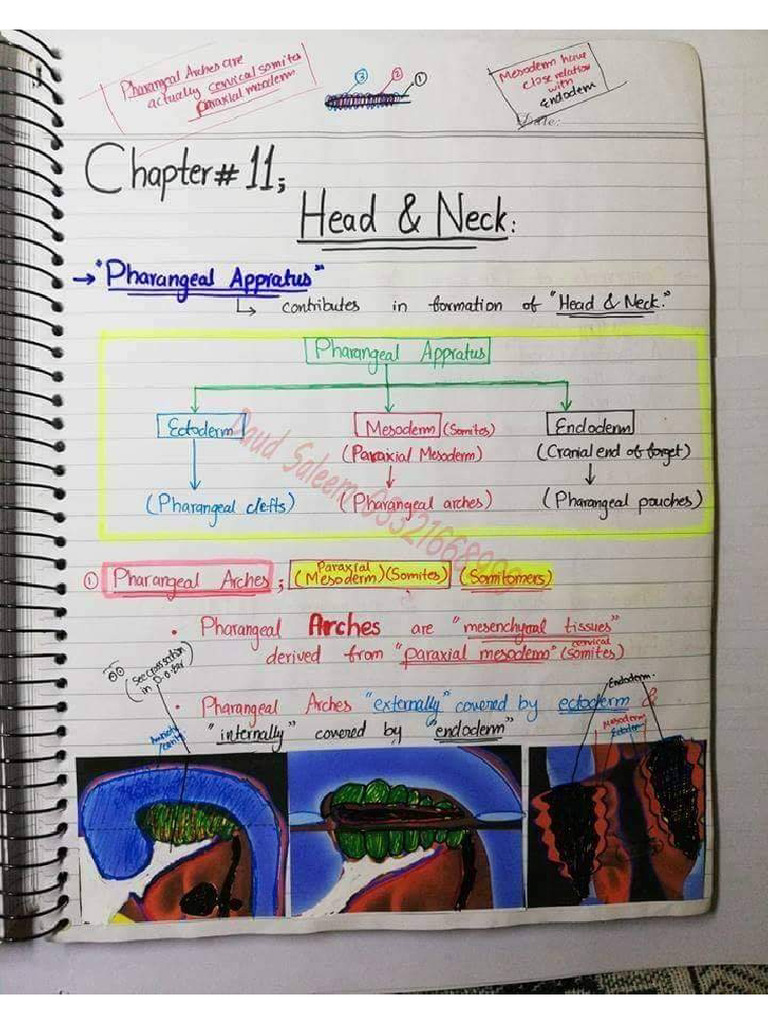 Pharangeal Arches are
actually cervical somites
paraxial mesoderm
③ ② ①
Mesoderm have
close relation
with
Endoderm
Date:
Chapter# 11;
Head & Neck:
→ "Pharangeal Appratus"
↳ contributes in formation of "Head & Neck."
Pharangeal Appratus
Ectoderm
Mesoderm (Somites)
Endoderm
(Paraxial Mesoderm)
(Cranial end of forget)
(Pharangeal clefts)
(Pharangeal arches)
(Pharangeal pouches)
Daud Saleem
① Pharangeal Arches; (Paraxial Mesoderm) (Somites) (Somitomers)
• Pharangeal Arches are "mesenchymal tissues"
derived from "paraxial mesoderm" (cervical somites)
• Pharangeal Arches "externally" covered by ectoderm &
"internally" covered by "endoderm"
Endoderm.
Mesoderm
Ectoderm